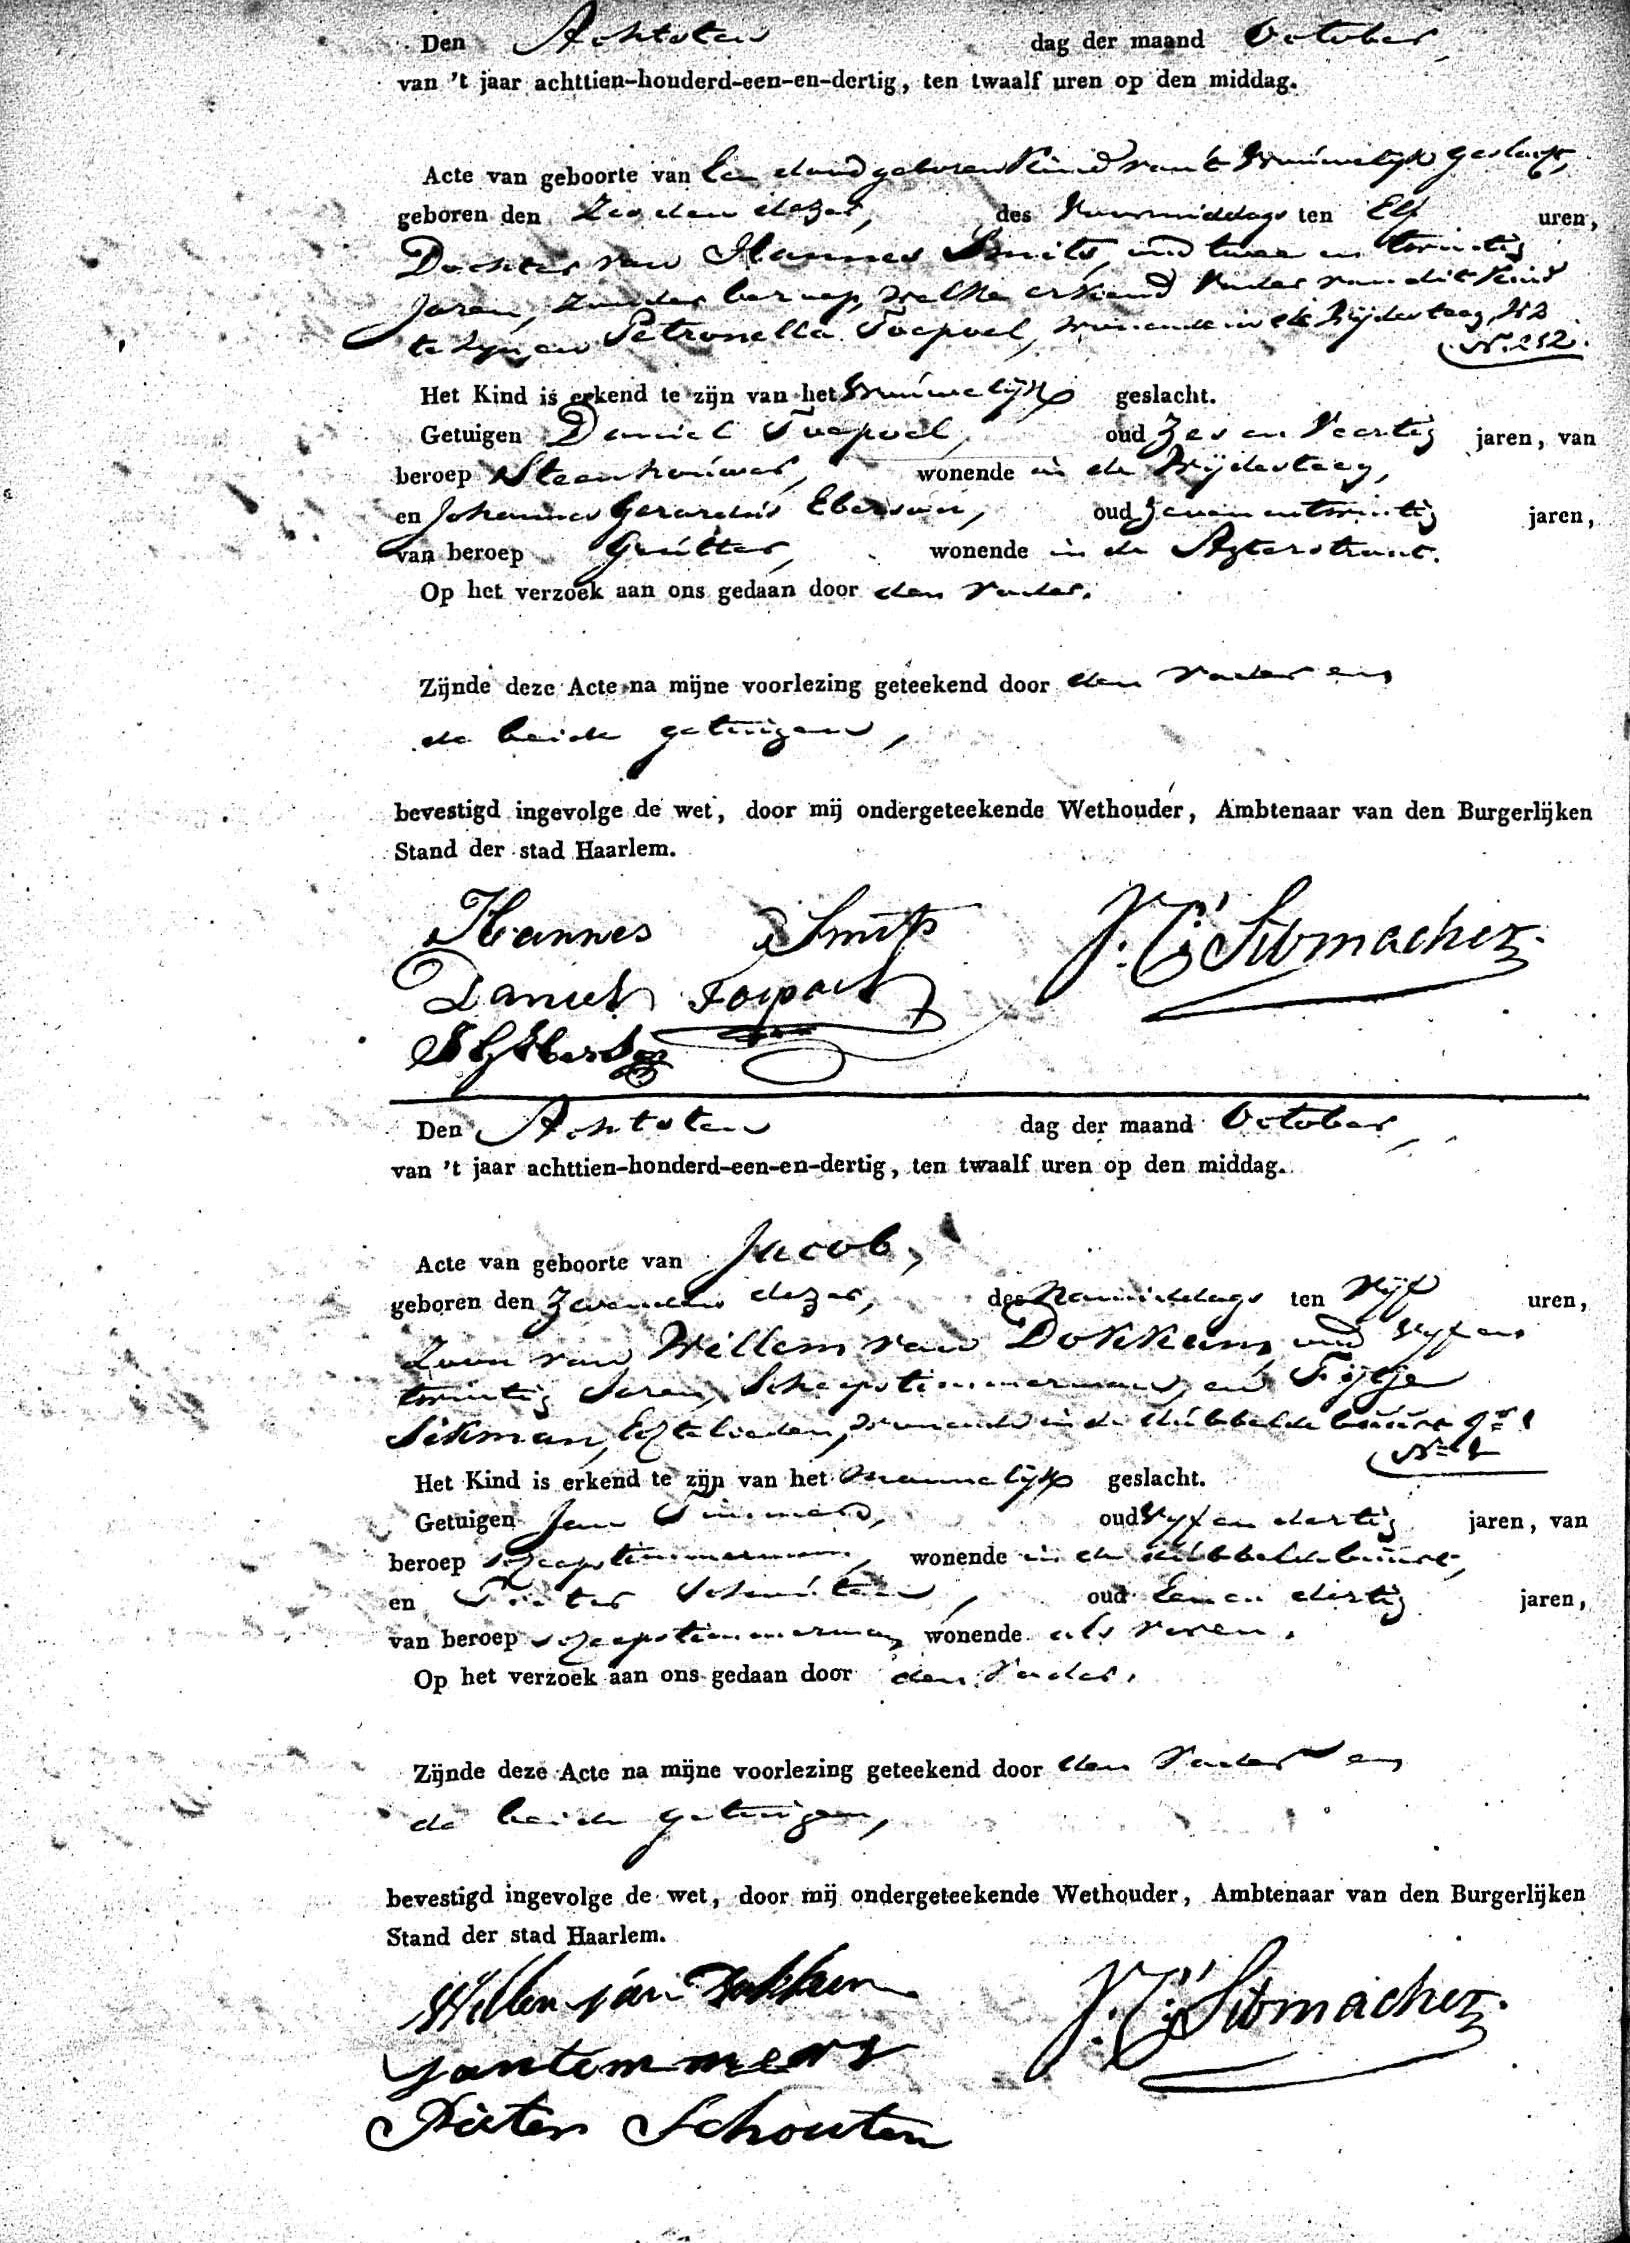 Den Achtsten dag der maand October,
van 't jaar achttien-honderd-een-en-dertig, ten twaalf uren op den middag.
Acte van geboorte van Een dood geboren Kind van 't Vrouwelijk geslagt,
geboren den Zesden dezer, des Voormiddags ten Elf uren,
Dochter van Hannes Smits, oud twee en twintig
Jaren, zonder beroep, welke erkend Vader van dit Kind
te zyn, en Petronella Toepoel, wonende in de
N. 252.
Het Kind is erkend te zijn van het Vrouwelijk geslacht.
Getuigen Daniel Toepoel, oud Zes en Veertig jaren, van
beroep Steenhouwer, wonende in de
en Johannes Gerardus Eberson, oud Zeven en twintig jaren,
van beroep wonende in de
Op het verzoek aan ons gedaan door den Vader.
Zijnde deze Acte na mijne voorlezing geteekend door den Vader en
de beide getuigen,
bevestigd ingevolge de wet, door mij ondergeteekende Wethouder, Ambtenaar van den Burgerlijken
Stand der stad Haarlem.
Hannes Smits
Daniel Toepoel
Eberson
Den Achtsten dag der maand October,
van 't jaar achttien-honderd-een-en-dertig, ten twaalf uren op den middag.
Acte van geboorte van Jacob,
geboren den Zevenden dezer, des Namiddags ten Vijf uren,
Zoon van Willem van Dokkum, oud Vyf en
twintig Jaren, Scheepstimmerman, en Fijtje
Sikman, Egtelieden, wonende in de dubbelde buurt
Het Kind is erkend te zijn van het Mannelijk geslacht.
Getuigen Jan Timmers, oud Vyf en dertig jaren, van
beroep scheepstimmerman, wonende in de dubbelde buurt,
en Pieter Schouten, oud Een en dertig jaren,
van beroep scheepstimmerman wonende als voren.
Op het verzoek aan ons gedaan door den Vader.
Zijnde deze Acte na mijne voorlezing geteekend door den Vader en
de beide getuigen,
bevestigd ingevolge de wet, door mij ondergeteekende Wethouder, Ambtenaar van den Burgerlijken
Stand der stad Haarlem.
Willem van Dokkum
Jan temmers
Pieter Schouten